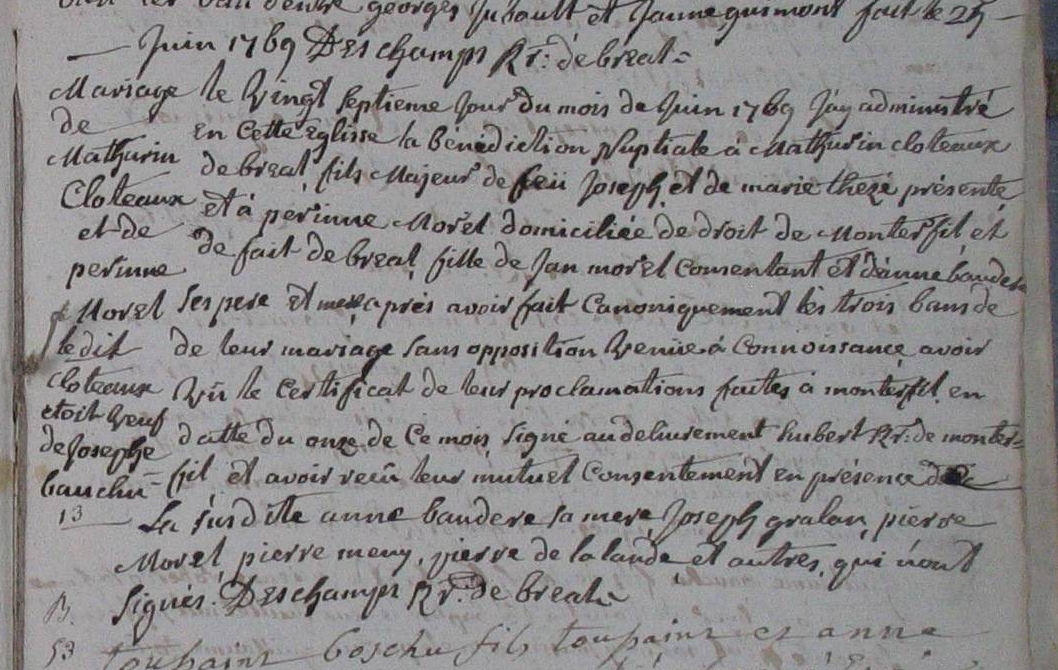 georges Jubault et Janne guimont fait le 25
Juin 1769 Deschamps Rr: de breal
Mariage
de
Mathurin
Cloteaux
et de
perinne
Morel
ledit
Cloteaux
etoit Veuf
de Josephe
bauchu
13
le Vingt septieme Jour du mois de Juin 1769 J'ay administré
En Cette Eglise la bénediction Nuptiale à Mathurin cloteaux
de breal, fils Majeur de feii Joseph et de marie thezé présente
et à perinne Morel domiciliée de droit de Monterfil et
de fait de breal, fille de Jan morel Consentant et d'anne baudere
ses pere et mere après avoir fait Canoniquement les trois bans de
de leur mariage sans opposition Venüe à Connoissance avoir
Vû le Certificat de leur proclamations faites à monterfil en
datte du onze de Ce mois signé au deliurement hubert Rr: de monter-
fil et avoir recû leur mutuel Consentement en présence de
La susdite anne baudere sa mere Joseph gralan, pierre
Morel pierre meny, pierre de la lande et autres, qui n'ont
signés. Deschamps Rr. de breal
B.
53
toussaint boschu fils toussaint et anne